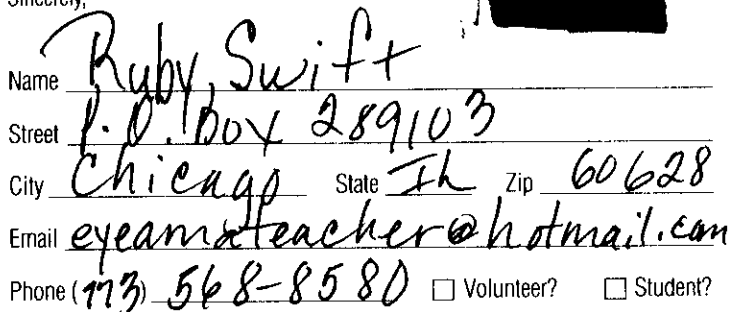 Sincerely,
Name Ruby Swift
Street P.O. Box 289103
City Chicago State IL Zip 60628
Email eyeamateacher@hotmail.com
Phone (773) 568-8580 ☐ Volunteer? ☐ Student?